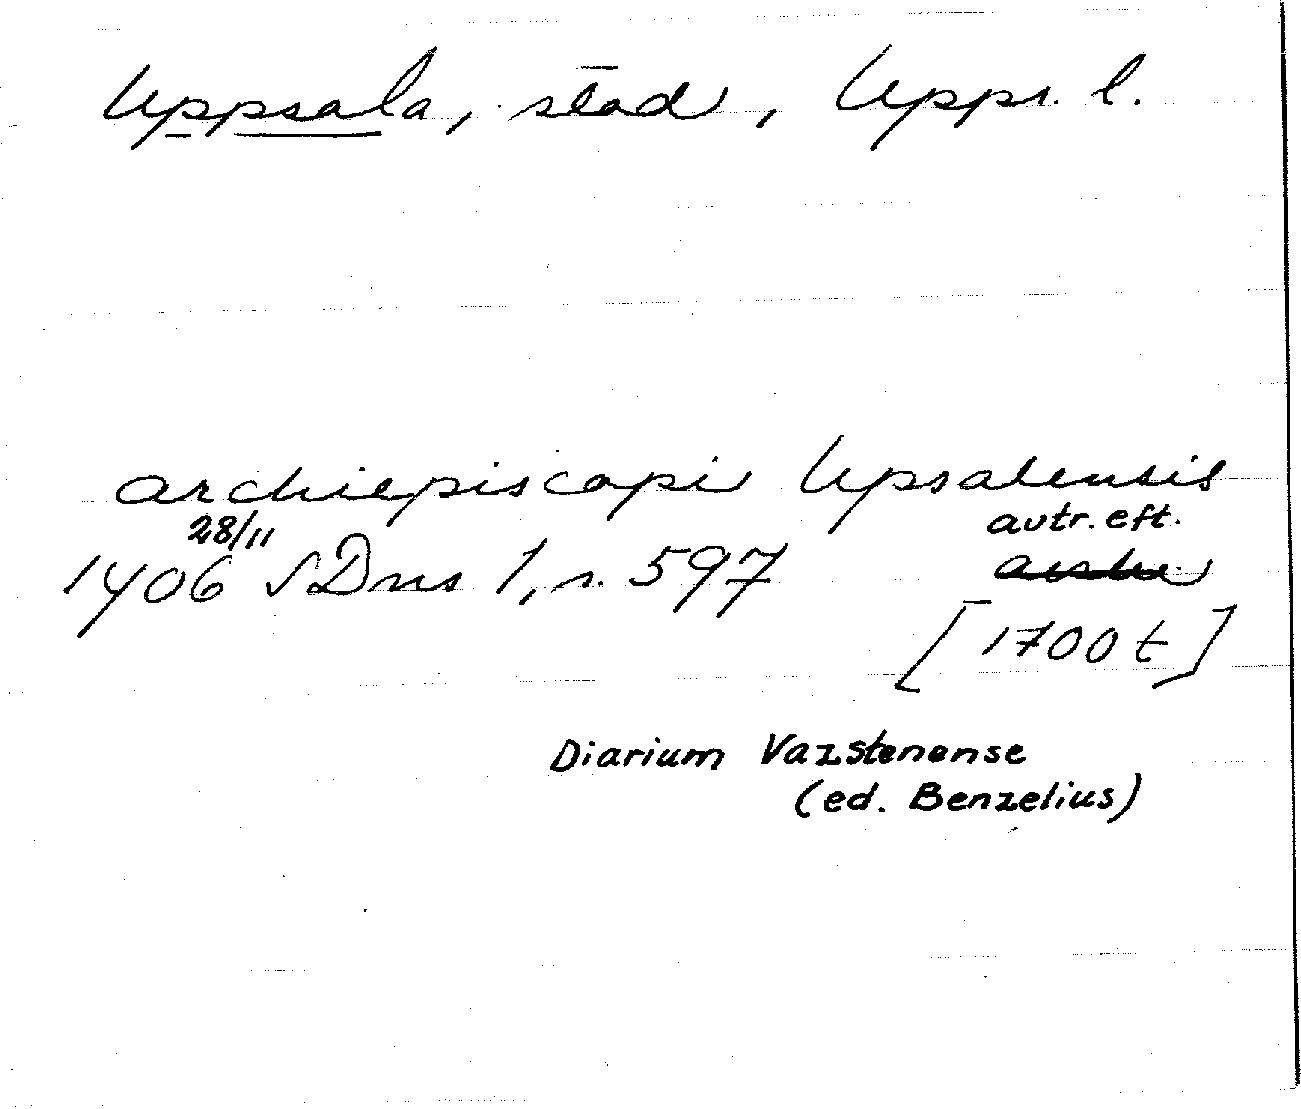 Uppsala, stad, Upps. l.
archiepiscopi Upsalensis
28/11 avtr. eft.
1406 SDns 1, s. 597
[1700 t]
Diarium Vazstenense
(ed. Benzelius)